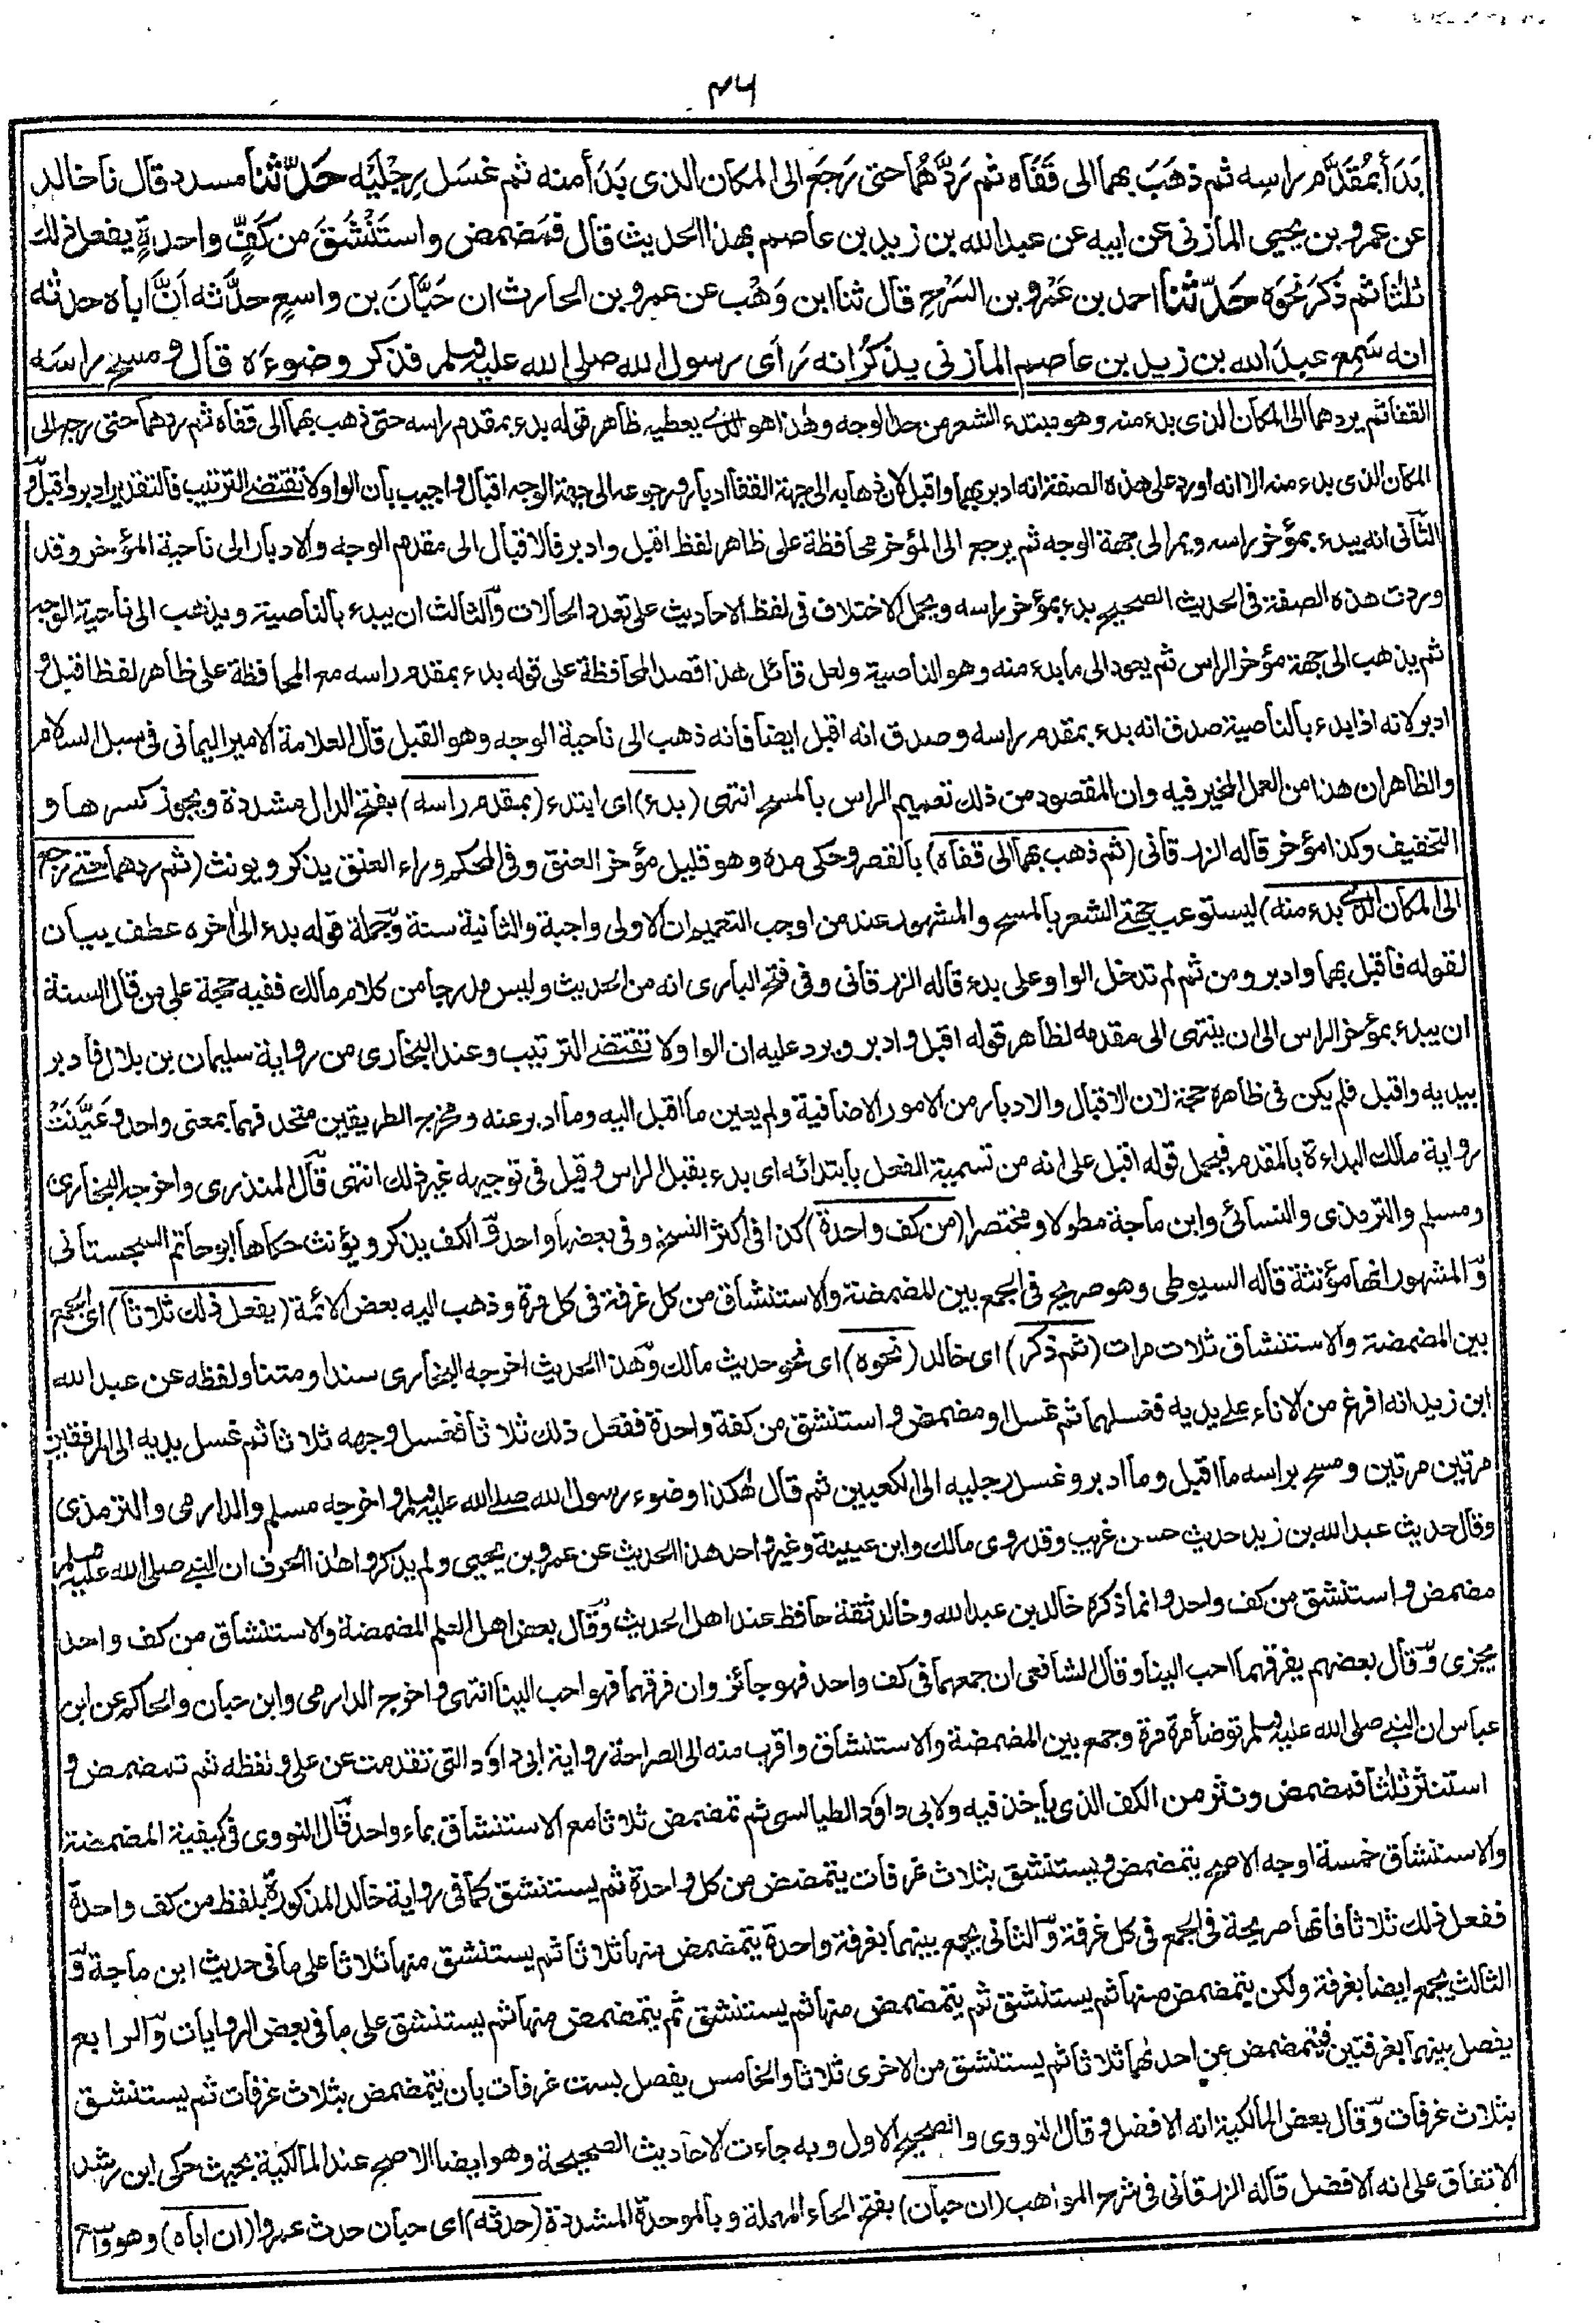 ٤٦
بَدَأَ بمُقَدَّم راسِه ثم ذهَبَ بهما الى قَفَاه ثم رَدَّهُما حتى رَجَعَ الى المكان الذى بَدَأ منه ثم غسَل رِجْلَيْه حَدَّثنا مسدد قال نا خالد
عن عمرو بن يحيى المازنى عن ابيه عن عبد الله بن زيد بن عاصم بهذا الحديث قال فمَضمض واستَنْشَقَ من كَفٍّ واحدةٍ يفعل ذلك
ثلثا ثم ذَكَرَ نحوَه حَدَّثنا احمد بن عَمْرو بن السَرْحِ قال ثنا ابن وَهْب عن عمرو بن الحارث ان حَبَّانَ بن واسعٍ حدَّثه اَنَّ اباه حدثه
انه سَمِعَ عبدَ الله بن زيد بن عاصم المازنى يذكُرُ انه رَأى رسول الله صلى الله عليه وسلم فذكر وضوءَه قال ومسح راسَه
القفا ثم يردهما الى المكان الذى بدء منه وهو مبتدء الشعر من حد الوجه وهذا هو الذى يعطيه ظاهر قوله بدء بمقدم راسه حتى ذهب بهما الى قفاه ثم ردهما حتى رجع الى
المكان الذى بدء منه الا انه اورد على هذه الصفة انه ادبر بهما واقبل لان ذهابه الى جهة القفا ادبار ورجوعه الى جهة الوجه اقبال واجيب بان الواو لا تقتضى الترتيب فالتقدير ادبر واقبل و
الثانى انه يبدء بمؤخر راسه ويمر الى جهة الوجه ثم يرجع الى المؤخر محافظة على ظاهر لفظ اقبل وادبر فالاقبال الى مقدم الوجه والادبار الى ناحية المؤخر وقد
وردت هذه الصفة فى الحديث الصحيح بدء بمؤخر راسه ويحمل الاختلاف فى لفظ الاحاديث على تعدد الحالات والثالث ان يبدء بالناصية ويذهب الى ناحية الوجه
ثم يذهب الى جهة مؤخر الراس ثم يعود الى ما بدء منه وهو الناصية ولعل قائل هذا قصد المحافظة على قوله بدء بمقدم راسه مع المحافظة على ظاهر لفظ اقبل و
ادبر لانه اذا بدء بالناصية صدق انه بدء بمقدم راسه وصدق انه اقبل ايضا فانه ذهب الى ناحية الوجه وهو القبل قال العلامة الامير اليمانى فى سبل السلام
والظاهر ان هذا من العمل المخير فيه وان المقصود من ذلك تعميم الراس بالمسح انتهى (بدء) اى ابتدء (بمقدم راسه) بفتح الدال مشددة ويجوز كسرها و
التخفيف وكذا مؤخر قاله الزرقانى (ثم ذهب بهما الى قفاه) بالقصر وحكى مده وهو قليل مؤخر العنق وفى المحكم وراء العنق يذكر ويونث (ثم ردهما حتى رجع
الى المكان الذى بدء منه) ليستوعب جهتى الشعر بالمسح والمشهور عند من اوجب التعميم ان الاولى واجبة والثانية سنة وجملة قوله بدء الى اخره عطف بيان
لقوله فاقبل بهما وادبر ومن ثم لم تدخل الواو على بدء قاله الزرقانى وفى فتح البارى انه من الحديث وليس مدرجا من كلام مالك ففيه حجة على من قال السنة
ان يبدء بمؤخر الراس الى ان ينتهى الى مقدمه لظاهر قوله اقبل وادبر ويرد عليه ان الواو لا تقتضى الترتيب وعند البخارى من رواية سليمان بن بلال فادبر
بيديه واقبل فلم يكن فى ظاهره حجة لان الاقبال والادبار من الامور الاضافية ولم يعين ما اقبل اليه وما ادبر عنه ومخرج الطريقين متحد فهما بمعنى واحد وعَيَّنَتْ
رواية مالك البداءة بالمقدم فيحمل قوله اقبل على انه من تسمية الفعل بابتدائه اى بدء بقبل الراس وقيل فى توجيهه غير ذلك انتهى قال المنذرى واخرجه البخارى
ومسلم والترمذى والنسائى وابن ماجة مطولا ومختصرا (من كف واحدة) كذا فى اكثر النسخ وفى بعضها واحد والكف يذكر ويؤنث حكاها ابو حاتم السجستانى
والمشهور انها مؤنثة قاله السيوطى وهو صريح فى الجمع بين المضمضة والاستنشاق من كل غرفة فى كل مرة وذهب اليه بعض الائمة (يفعل ذلك ثلاثا) اى الجمع
بين المضمضة والاستنشاق ثلاث مرات (ثم ذكر) اى خالد (نحوه) اى نحو حديث مالك وهذا الحديث اخرجه البخارى سندا ومتنا ولفظه عن عبد الله
ابن زيد انه افرغ من الاناء على يديه فغسلهما ثم غسل او مضمض واستنشق من كفة واحدة ففعل ذلك ثلاثا فغسل وجهه ثلاثا ثم غسل يديه الى المرفقين
مرتين مرتين ومسح براسه ما اقبل وما ادبر وغسل رجليه الى الكعبين ثم قال هكذا وضوء رسول الله صلى الله عليه وسلم واخرجه مسلم والدارمى والترمذى
وقال حديث عبد الله بن زيد حديث حسن غريب وقد روى مالك وابن عيينة وغير واحد هذا الحديث عن عمرو بن يحيى ولم يذكروا هذا الحرف ان النبى صلى الله عليه وسلم
مضمض واستنشق من كف واحد وانما ذكره خالد بن عبد الله وخالد ثقة حافظ عند اهل الحديث وقال بعض اهل العلم المضمضة والاستنشاق من كف واحد
يجزى وقال بعضهم يفرقهما احب الينا وقال الشافعى ان جمعهما فى كف واحد فهو جائز وان فرقهما فهو احب الينا انتهى واخرج الدارمى وابن حبان والحاكم عن ابن
عباس ان النبى صلى الله عليه وسلم توضأ مرة مرة وجمع بين المضمضة والاستنشاق واقرب منه الى الصراحة رواية ابى داود التى تقدمت عن على ولفظه ثم تمضمض و
استنثر ثلثا فمضمض ونثر من الكف الذى ياخذ فيه ولابى داود الطيالسى ثم تمضمض ثلاثا مع الاستنشاق بماء واحد قال النووى فى كيفية المضمضة
والاستنشاق خمسة اوجه الاصح يتمضمض ويستنشق بثلاث غرفات يتمضمض من كل واحدة ثم يستنشق كما فى رواية خالد المذكورة بلفظ من كف واحدة
ففعل ذلك ثلاثا فانها صريحة فى الجمع فى كل غرفة والثانى يجمع بينهما بغرفة واحدة يتمضمض منها ثلاثا ثم يستنشق منها ثلاثا على ما فى حديث ابن ماجة و
الثالث يجمع ايضا بغرفة ولكن يتمضمض منها ثم يستنشق ثم يتمضمض منها ثم يستنشق ثم يتمضمض منها ثم يستنشق على ما فى بعض الروايات والرابع
يفصل بينهما بغرفتين فيتمضمض عن احدهما ثلاثا ثم يستنشق من الاخرى ثلاثا والخامس يفصل بست غرفات بان يتمضمض بثلاث غرفات ثم يستنشق
بثلاث غرفات وقال بعض المالكية انه الافضل وقال النووى والصحيح الاول وبه جاءت الاحاديث الصحيحة وهو ايضا الاصح عند المالكية بحيث حكى ابن رشد
الاتفاق على انه الافضل قاله الزرقانى فى شرح المواهب (ان حبان) بفتح الحاء المهملة وبالموحدة المشددة (حدثه) اى حبان حدث عمروا (ان اباه) وهو واسع